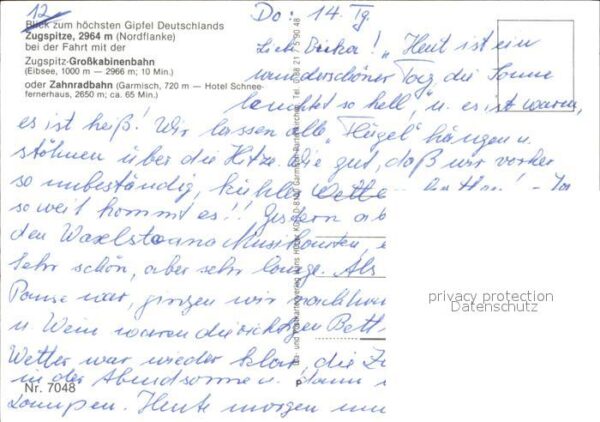 12
Do: 14. Tg.
Blick zum höchsten Gipfel Deutschlands
Zugspitze, 2964 m (Nordflanke)
bei der Fahrt mit der
Zugspitz-Großkabinenbahn
(Eibsee, 1000 m — 2966 m; 10 Min.)
oder Zahnradbahn (Garmisch, 720 m — Hotel Schnee-
fernerhaus, 2650 m; ca. 65 Min.)
Liebe ! "Heut ist ein
wunderschöner Tag, die Sonne
leuchtet so hell", u. es ist warm,
es ist heiß! Wir lassen alle "Flügel" hängen u.
stöhnen über die Hitze. Wie gut, daß wir vorher
so unbeständig, kühles Wetter hatten! - Ja
so weit kommt es!! Gestern ab
den Musikanten,
Sehr schön, aber sehr lange. Als
Pause war, gingen wir nachhau
u. Wein waren die richtigen Bett
Wetter war wieder klar, die Zu
in der Abendsonne u. dann
Lampen. Heute morgen
Nr. 7048
privacy protection
Datenschutz